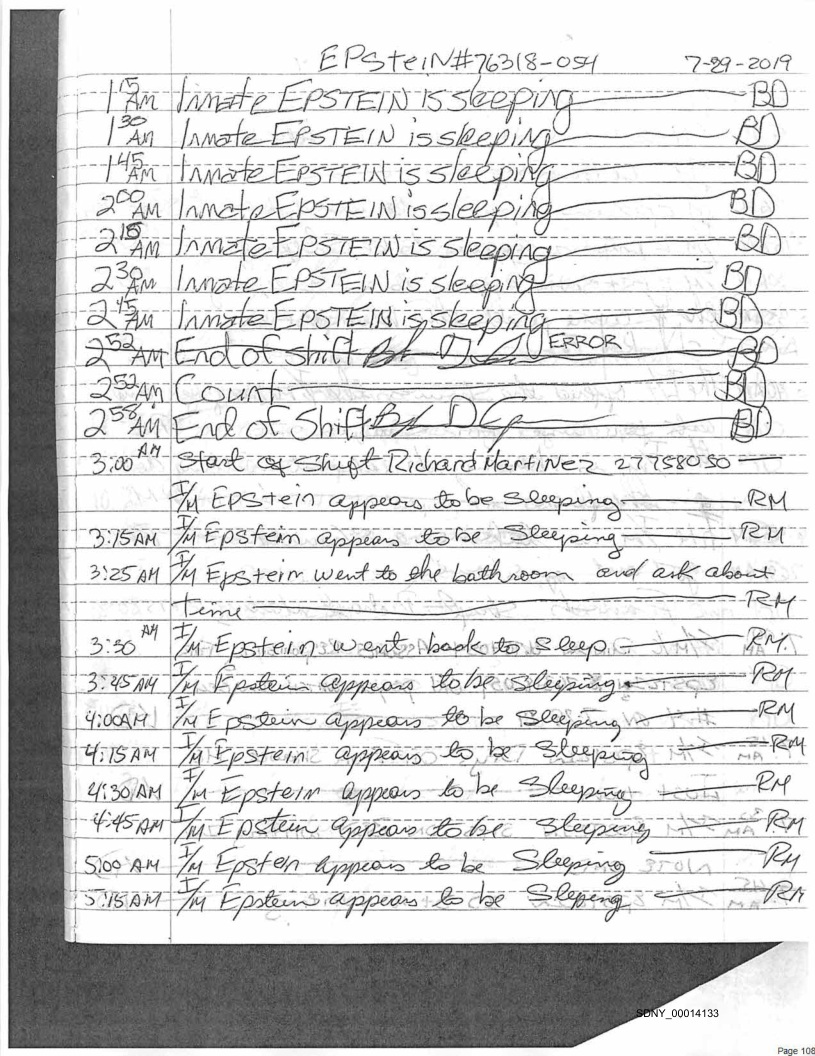 EPSteiN#76318-054 7-29-2019
1 15 AM Inmate EPSTEIN is sleeping BD
1 30 AM Inmate EPSTEIN is sleeping BD
1 45 AM Inmate EPSTEIN is sleeping BD
2 00 AM Inmate EPSTEIN is sleeping BD
2 15 AM Inmate EPSTEIN is sleeping BD
2 30 AM Inmate EPSTEIN is sleeping BD
2 45 AM Inmate EPSTEIN is sleeping BD
2 52 AM End of shift ERROR BD
2 52 AM Count BD
2 58 AM End of Shift BD
3:00 AM Start of Shift Richard Martinez 27758050
I/M EPStein appears to be Sleeping RM
3:15 AM I/M Epstein appears to be Sleeping RM
3:25 AM I/M Epstein went to the bathroom and ask about
time RM
3:30 AM I/M Epstein went back to sleep. RM.
3:45 AM I/M Epstein appears to be sleeping RM
4:00AM I/M Epstein appears to be Sleeping RM
4:15 AM I/M Epstein appears to be Sleeping RM
4:30 AM I/M Epstein appears to be Sleeping RM
4:45 AM I/M Epstein appears to be Sleeping RM
5:00 AM I/M Epsten appears to be Sleeping RM
5:15 AM I/M Epstein appears to be Sleping RM
SDNY_00014133
Page 108